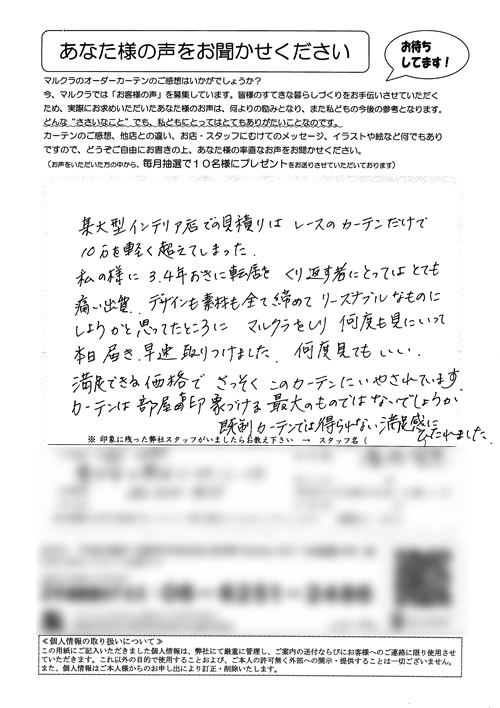 あなた様の声をお聞かせください
お待ち
してます!
マルクラのオーダーカーテンのご感想はいかがでしょうか?
今、マルクラでは「お客様の声」を募集しています。皆様のすてきな暮らしづくりをお手伝いさせていただく
ため、実際にお求めいただいたあなた様のお声は、何よりの励みとなり、また私どもの今後の参考となります。
どんな“ささいなこと”でも、私どもにとってはとてもありがたいことなのです。
カーテンのご感想、他店との違い、お店・スタッフにむけてのメッセージ、イラストや絵など何でもあり
ですので、どうぞご自由にお書きの上、あなた様の率直なお声をお聞かせください。
(お声をいただいた方の中から、毎月抽選で10名様にプレゼントをお送りさせていただいております)
某大型インテリア店での見積りは レースのカーテンだけで
10万を軽く超えてしまった.
私の様に 3.4年おきに転居を くり返す者にとってはとても
痛い出費. デザインも素材も全て締めて リーズナブルなものに
しようかと思ってたところに マルクラをしり 何度も見にいって
本日届き、早速取りつけました. 何度見てもいい.
満足できる価格で さっそく このカーテンにいやされています.
カーテンは 部屋を印象づける 最大のものではないでしょうか
既制カーテンでは得られない満足感に
ひたれました.
※ 印象に残った弊社スタッフがいましたらお教え下さい → スタッフ名 (
≪個人情報の取り扱いについて≫
この用紙にご記入いただきました個人情報は、弊社にて厳重に管理し、ご案内の送付ならびにお客様へのご連絡に限り使用させ
ていただきます。これ以外の目的で使用することおよび、ご本人の許可無く外部への開示・提供することは一切ございません。
また、個人情報はご本人様からのお申し出により訂正・削除いたします。